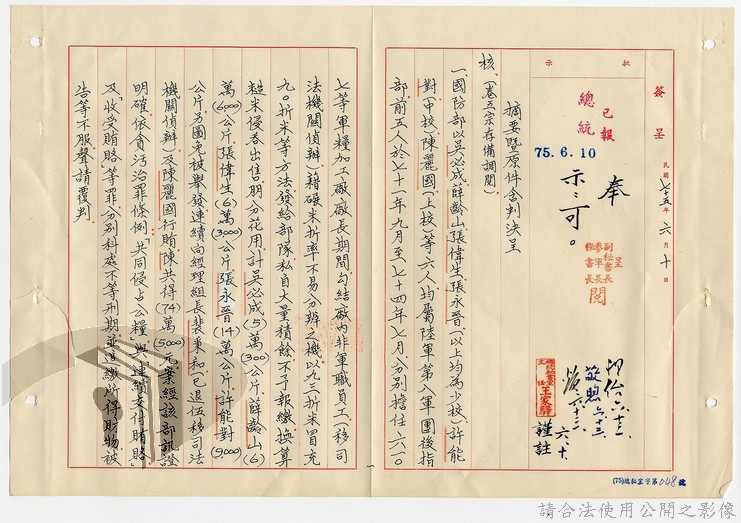 簽呈
民國七十五年六月十日
批示
已報
總統
75.6.10
奉
示:可。
呈
副秘書長
參軍長
秘書長
閱
謹註
六.十.
摘要暨原件含判決呈
核。(卷五宗存備調閱)
一國防部以吳必成薛齡山張偉生張永晉(以上均為少校)許能
對(中校)陳麗國(上校)等六人均屬陸軍第八軍團後指
部前五人於七十一年九月至七十四年七月分別擔任六一〇
七等軍糧加工廠廠長期間勾結廠內非軍職員工(移司
法機關偵辦)藉碾米折率不易分辨之機以九三折米冒充
九〇折米等方法發給部隊私自大量積餘不予報繳換算
糙米侵吞出售朋分花用計吳必成(5)萬(300)公斤薛齡山(6)
萬(6000)公斤張偉生(6)萬(3000)公斤張永晉(14)萬公斤許能對(9000)
公斤另圖免被舉發連續向經理組長裴秉和(已退伍移司法
機關偵辦)及陳麗國行賄陳共得(74)萬(5000)元案經該部訊證
明確依貪污治罪條例「共同侵占公糧」與「連續交付賄賂」
及「收受賄賂」等罪分別科處不等刑期並追繳所得財物被
告等不服聲請覆判。
(75)總秘室字第048號
請合法使用公開之影像